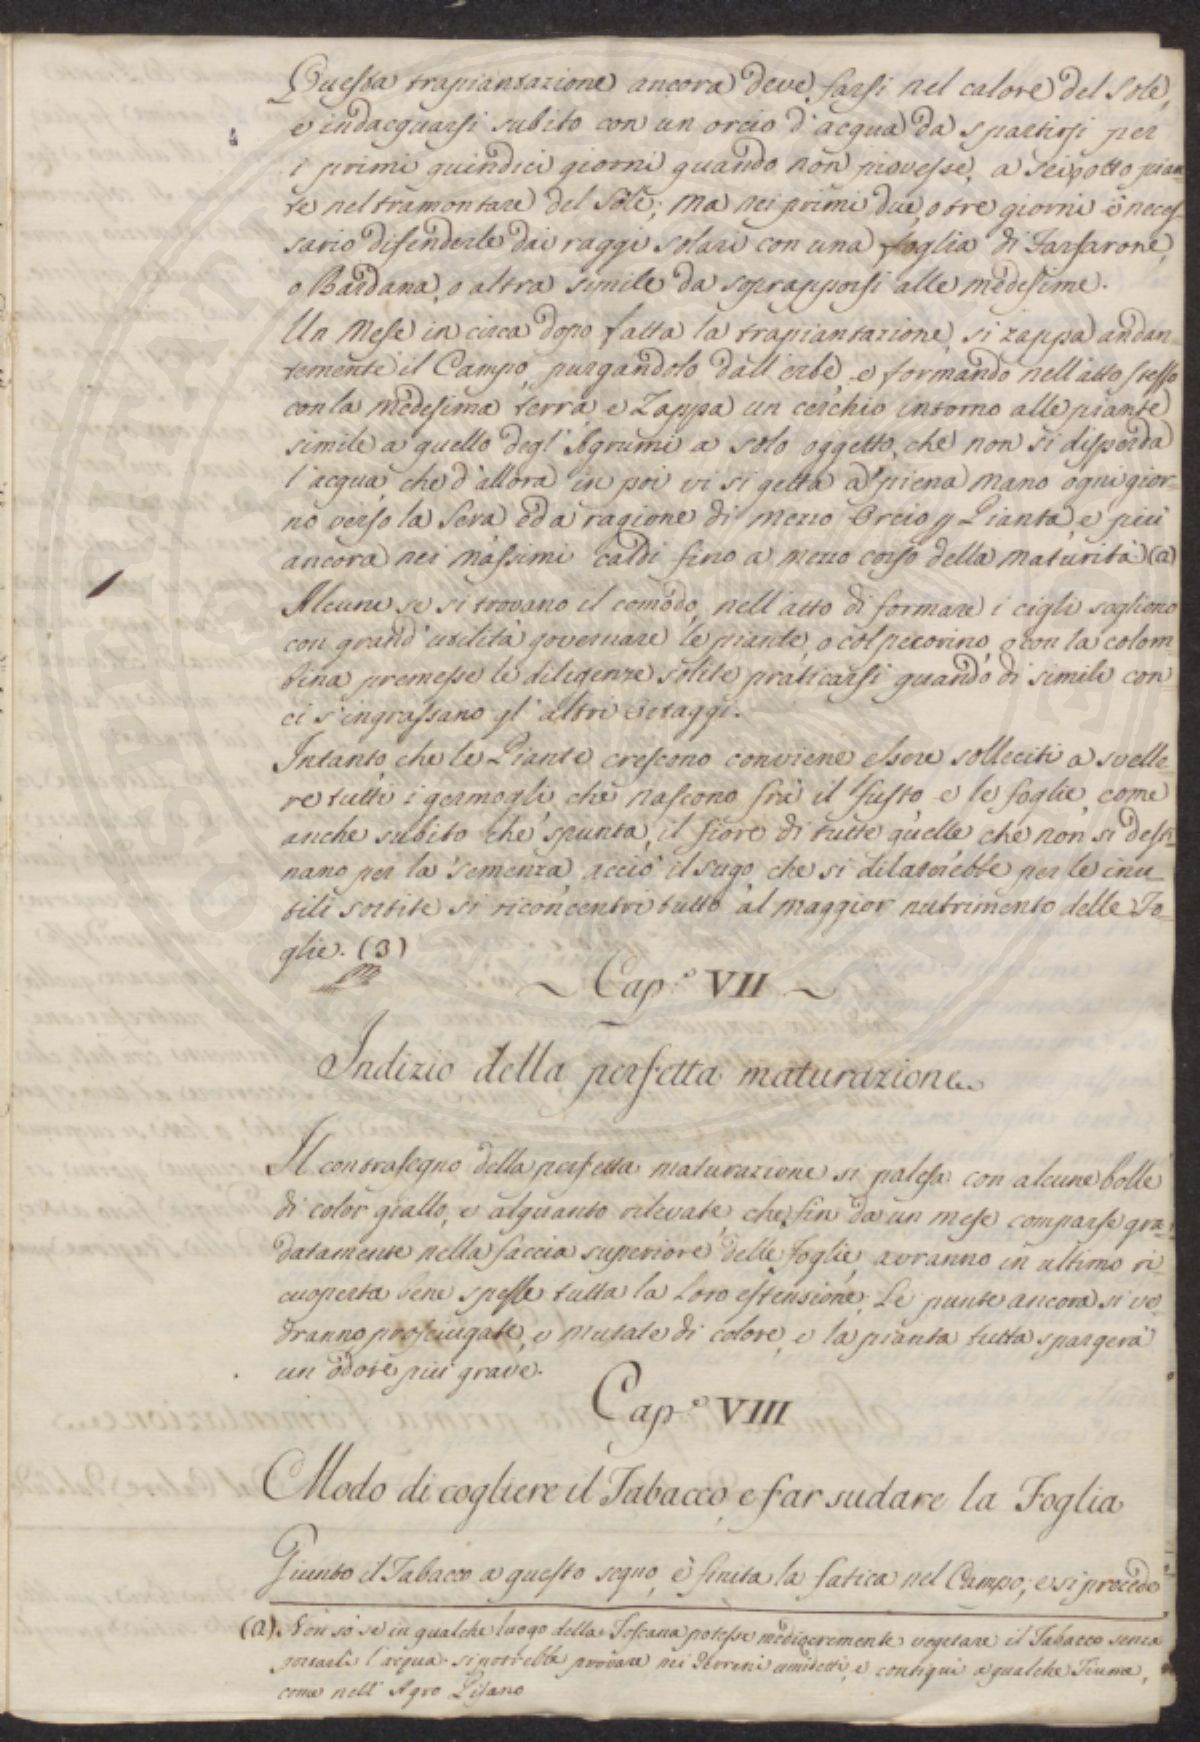 Questa trapiantazione ancora deve farsi nel calore del Sole,
e indacquarsi subito con un orcio d'acqua da spartirsi per
i primi quindici giorni quando non piovesse, a sei, o otto pian=
te nel tramontare del Sole; ma nei primi due, o tre giorni è neces=
sario difenderle dai raggi solari con una foglia di Farfarone,
o Bardana, o altra simile da soprapporsi alle medesime.
Un Mese in circa dopo fatta la trapiantazione, si zappa andan=
temente il Campo, purgandolo dall'erbe, e formando nell'atto stesso
con la medesima terra, e Zappa un cerchio intorno alle piante
simile a quello degl'Agrumi a solo oggetto, che non si disperda
l'acqua, che d'allora in poi vi si getta a piena mano ogni gior=
no verso la Sera ed a ragione di mezzo Orcio p Pianta e più
ancora nei massimi caldi fino a mezzo corso della maturità (a)
Alcuni se si trovano il comodo, nell'atto di formare i cigli sogliono
con grand'utilità governare le piante, o col pecorino, o con la colom=
bina premesse le diligenze solite praticarsi quando di simili con=
ci s'ingrassano gl'altri Ortaggi.
Intanto che le Piante crescono conviene essere solleciti a svelle=
re tutti i germogli, che nascono frà il fusto e le foglie, come
anche subito che spunta, il fiore di tutte quelle, che non si desti=
nano per la semenza, acciò il sugo, che si dilaterebbe per le inu=
tili sortite si riconcentri tutto al maggior nutrimento delle Fo=
glie. (3)
~ Cap.o VII ~
Indizio della perfetta maturazione
Il contrasegno della perfetta maturazione si palesa con alcune bolle
di color giallo, e alquanto rilevate, che fin da un mese comparse gra=
datamente nella faccia superiore delle Foglie, avranno in ultimo ri=
cuoperta bene spesso tutta la loro estensione. Le punte ancora si ve=
dranno prosciugate, e mutate di colore, e la pianta tutta spargerà
un odore più grave.
Cap.o VIII
Modo di cogliere il Tabacco, e far sudare la Foglia
Giunto il Tabacco a questo segno, è finita la fatica nel Campo; e si procede
(a). Non sò se in qualche luogo della Toscana potesse mediocremente vegetare il Tabacco senza
portarli l'acqua. si potrebbe provare nei Terreni umidetti, e contigui a qualche Fiume,
come nell'Agro Pisano